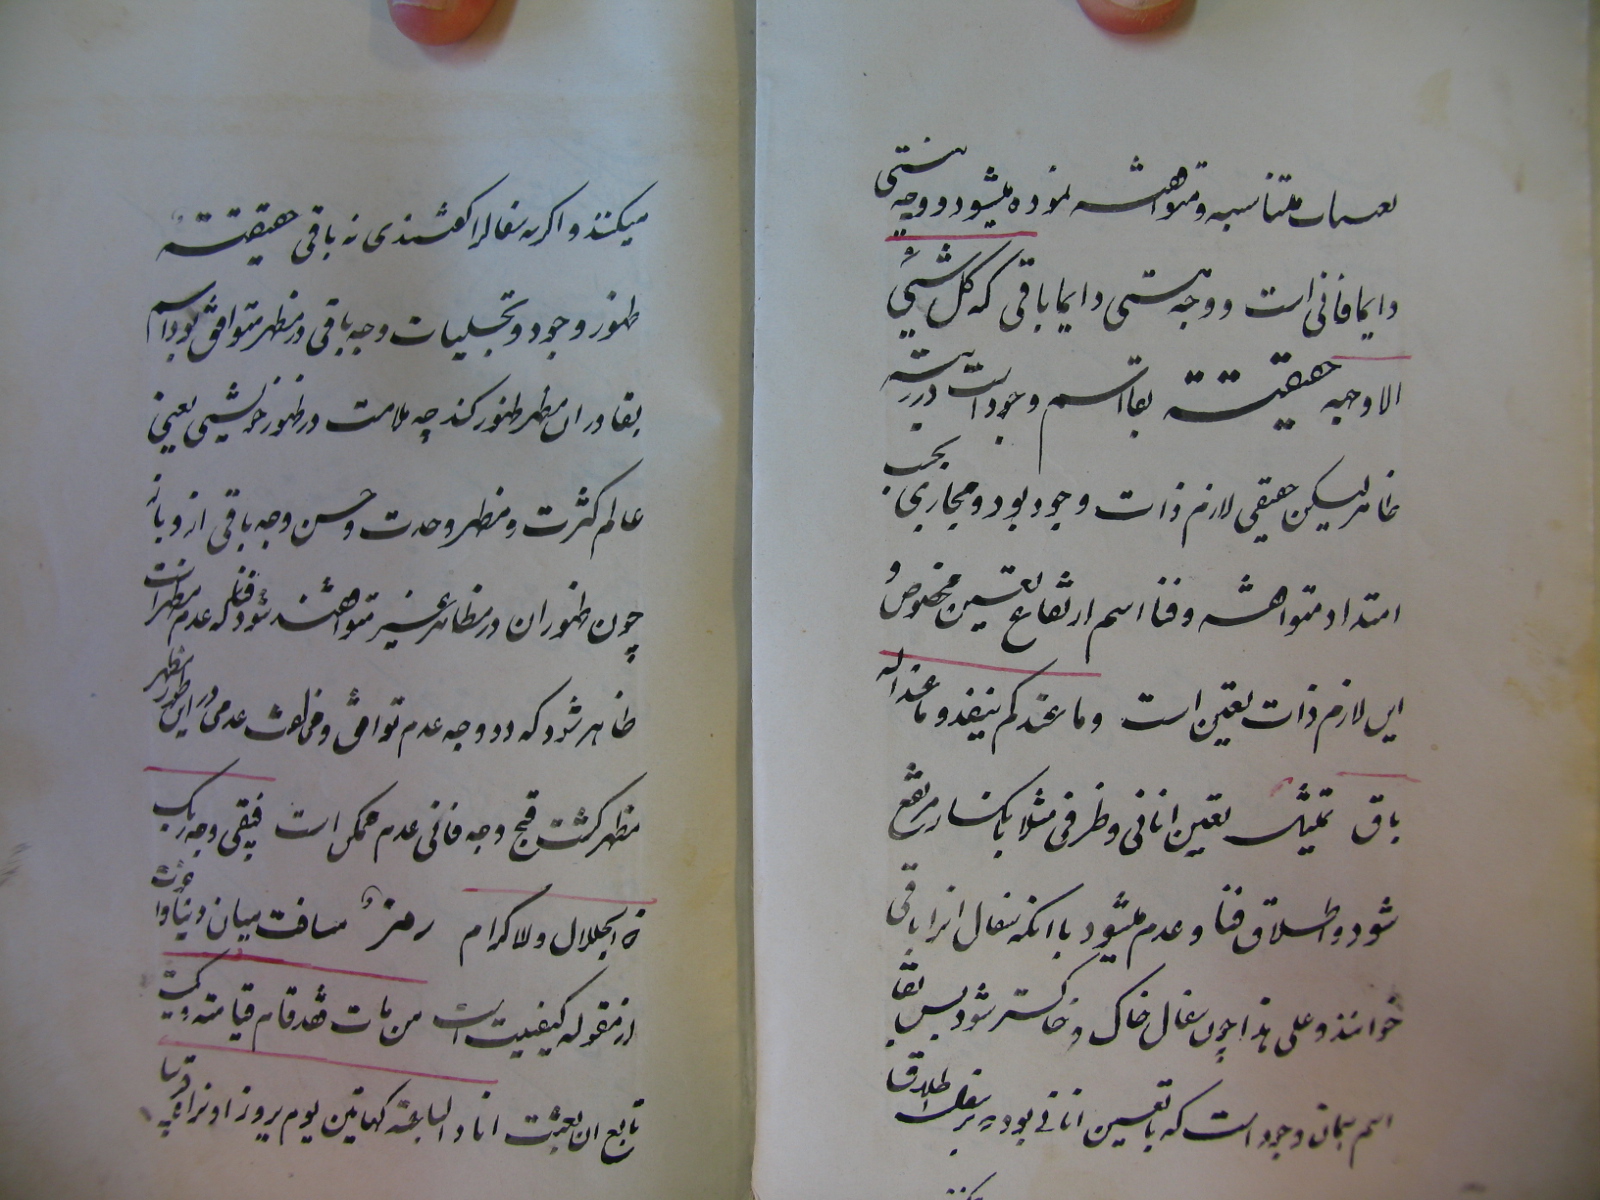 تعینات متناسبه و متوافقه نموده میشود و وجه هستی
دایما فانی است و وجه هستی دایما باقی که کل شیئ
الا وجهه حقیقته بقا اسم وجود است در مرتبه
ظاهر لیکن حقیقی لازم ذات وجود بود و مجازی بحسب
امتداد متوافقه و فنا اسم ارتفاع تعین مخصوص و
این لازم ذات تعین است وما عندکم ینفد وما عند الله
باق تمثیل تعین انائی و ظرفی مثلا بانکسار مرتفع
شود و اطلاق فنا و عدم میشود با انکه سفال انرا باقی
خوانند و علی هذا چون سفال خاک و خاکستر شود پس بقا
اسم همان وجود است که با تعین انائی بود و بر سفال اطلاق
میکنند و اگر نه سفال را گفتندی نه باقی حقیقته
ظهور وجود و تجلیات وجه باقی در مظهر متوافق بود اسم
بقا در ان مظهر ظهور کند چه ملامت در ظهور خویشی یعنی
عالم کثرت و مظهر وحدت و حسن وجه باقی از و باز
چون ظهور ان در مظاهر غیر متوافقه شود فنا که عدم مظهر انست
ظاهر شود که دو وجه عدم توافق و مخالفت عدمی در این ظهور مظهر
مظهر گشت قبح وجه فانی عدم ممکن است فیبقی وجه ربک
ذو الجلال والاکرام رمز مسافت میان دنیا و آخرت
از مقوله کیفیت است من مات فقد قام قیامته و کمیت
تابع ان بعثت انا والساعة کهاتین یوم یرونه او نراه قریبا